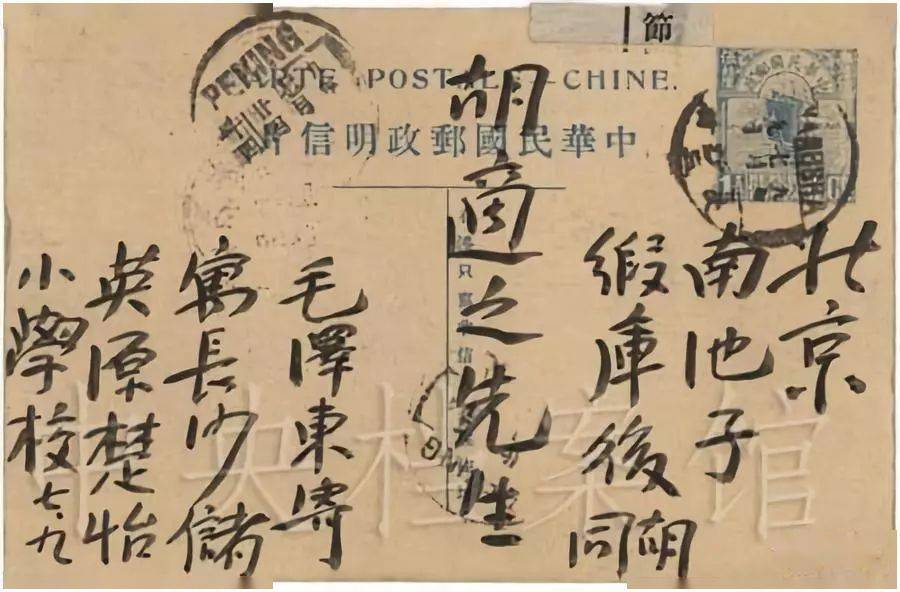 節
CARTE POSTALE—CHINE.
中華民國郵政明信片
PEKING
CHANGSHA
北京
南池子
緞庫後胡同
胡適之先生
毛澤東寄
寓長沙儲
英源楚怡
小學校 七、九
中央档案馆